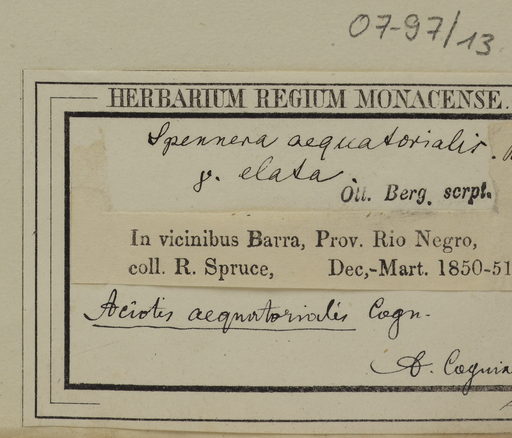 07-97/13
HERBARIUM REGIUM MONACENSE.
Spennera aequatorialis.
γ. elata.
Ott. Berg. scrpt.
In vicinibus Barra, Prov. Rio Negro,
coll. R. Spruce, Dec,-Mart. 1850-51
Aciotis aequatorialis Cogn.
A. Cognia